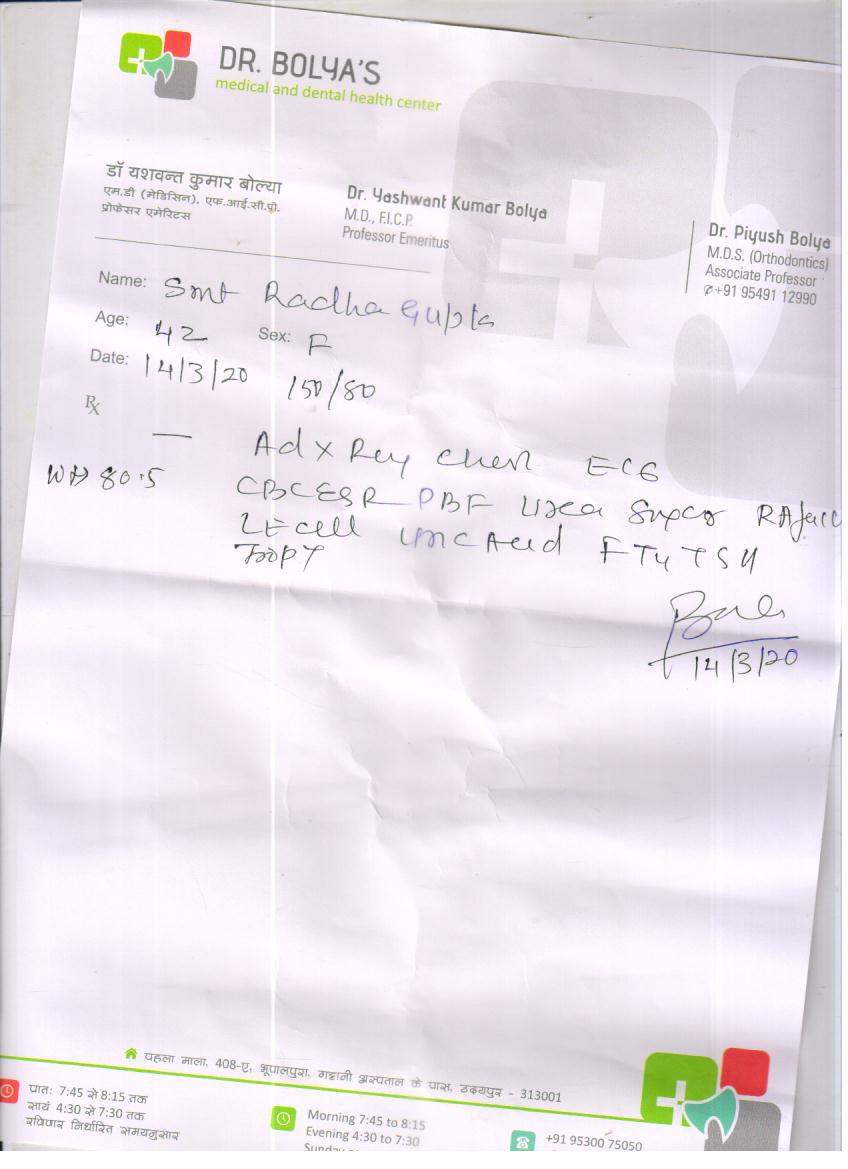 DR. BOLYA'S
medical and dental health center
डॉ यशवन्त कुमार बोल्या
एम.डी (मेडिसिन), एफ.आई.सी.पी.
प्रोफेसर एमेरिटस
Dr. Yashwant Kumar Bolya
M.D., F.I.C.P.
Professor Emeritus
Dr. Piyush Bolya
M.D.S. (Orthodontics)
Associate Professor
✆+91 95491 12990
Name: Smt Radha Gupta
Age: 42 Sex: F
Date: 14/3/20 150/80
Rx
Ad X Ray Chest ECG
80.5
CBC ESR PBF Urea Sugar RA
LE cell Uric Acid FT4 TSH
14/3/20
पहला माला, 408-ए, भूपालपुरा, गट्टानी अस्पताल के पास, उदयपुर - 313001
प्रातः 7:45 से 8:15 तक
सायं 4:30 से 7:30 तक
रविवार निर्धारित समयनुसार
Morning 7:45 to 8:15
Evening 4:30 to 7:30
+91 95300 75050